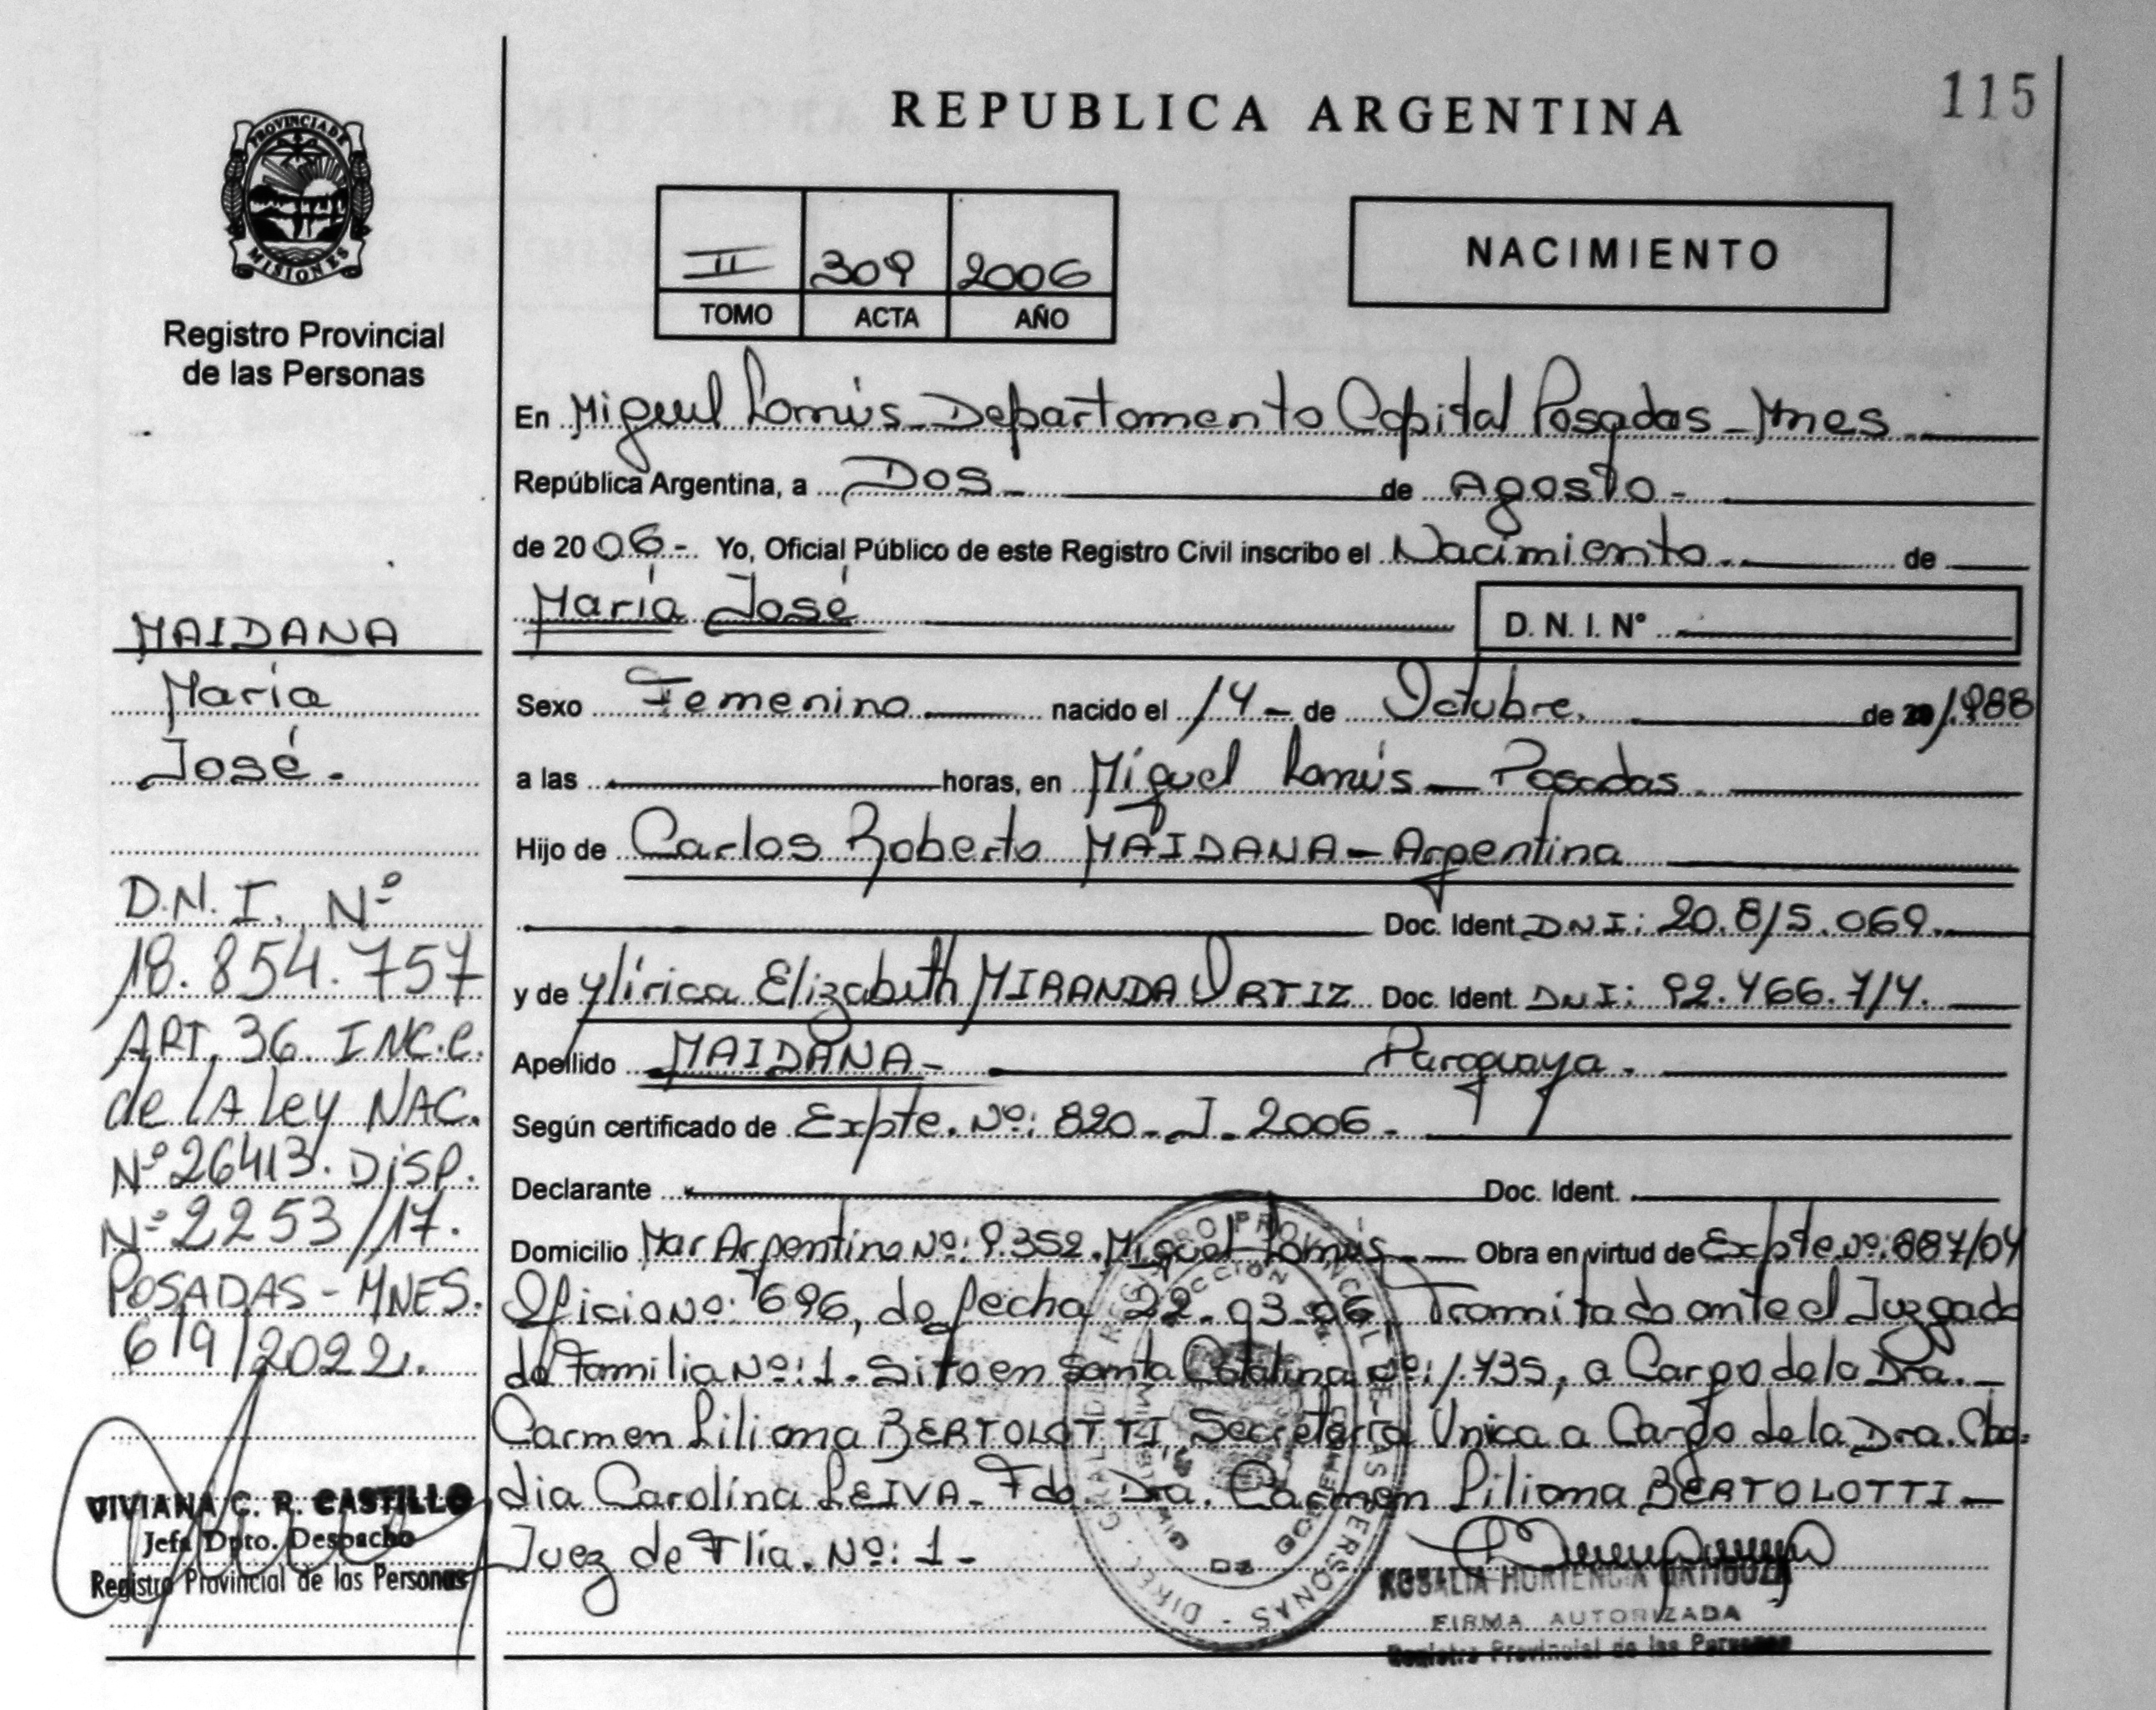 115
REPUBLICA ARGENTINA
PROVINCIA DE
MISIONES
Registro Provincial
de las Personas
II 309 2006
TOMO ACTA AÑO
NACIMIENTO
En Miguel Lanús - Departamento Capital Posadas - Mnes
República Argentina, a Dos - de Agosto -
de 2006 - Yo, Oficial Público de este Registro Civil inscribo el Nacimiento de
María José
D. N. I. N°
Sexo Femenino nacido el 14 - de Octubre. de 20 1.988
a las horas, en Miguel Lanús - Posadas.
Hijo de Carlos Roberto MAIDANA - Argentina
Doc. Ident. DNI: 20.815.069.
y de Ylírica Elizabeth MIRANDA ORTIZ Doc. Ident. DNI: 92.466.714.
Apellido MAIDANA - Paraguaya.
Según certificado de Expte. Nº: 820 - J - 2006 -
Declarante Doc. Ident.
Domicilio Mar Argentino Nº: 9.352. Miguel Lanús - Obra en virtud de Expte Nº: 887/04
Oficio Nº: 696, de fecha 22-03-06, Tramitado ante el Juzgado
de Familia Nº: 1 - Sito en Santa Catalina Nº: 1.735, a Cargo de la Dra. -
Carmen Liliana BERTOLOTTI, Secretaría Única a Cargo de la Dra. Clau-
dia Carolina LEIVA - Fdo. Dra. Carmen Liliana BERTOLOTTI -
Juez de Flia. Nº: 1 -
FIRMA AUTORIZADA
Registro Provincial de las Personas
MAIDANA
María
José.
D.N.I. Nº
18.854.757
ART. 36 INC.C.
de LA Ley NAC.
Nº 26413. DISP.
Nº 2253/17.
POSADAS - MNES.
6/9/2022.
VIVIANA C. R. CASTILLO
Jefa Dpto. Despacho
Registro Provincial de las Personas